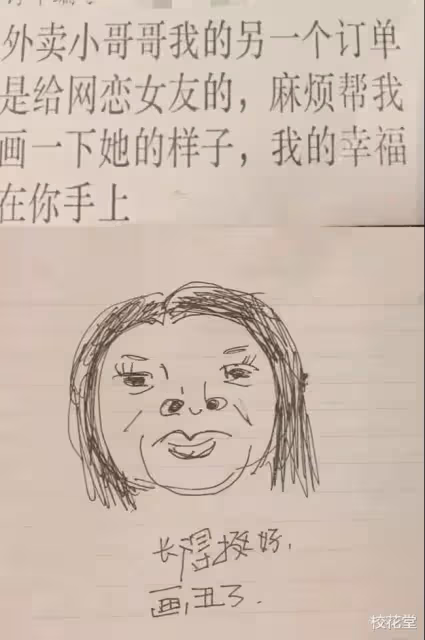 外卖小哥哥我的另一个订单
是给网恋女友的，麻烦帮我
画一下她的样子，我的幸福
在你手上
长得挺好，
画丑了.
校花堂